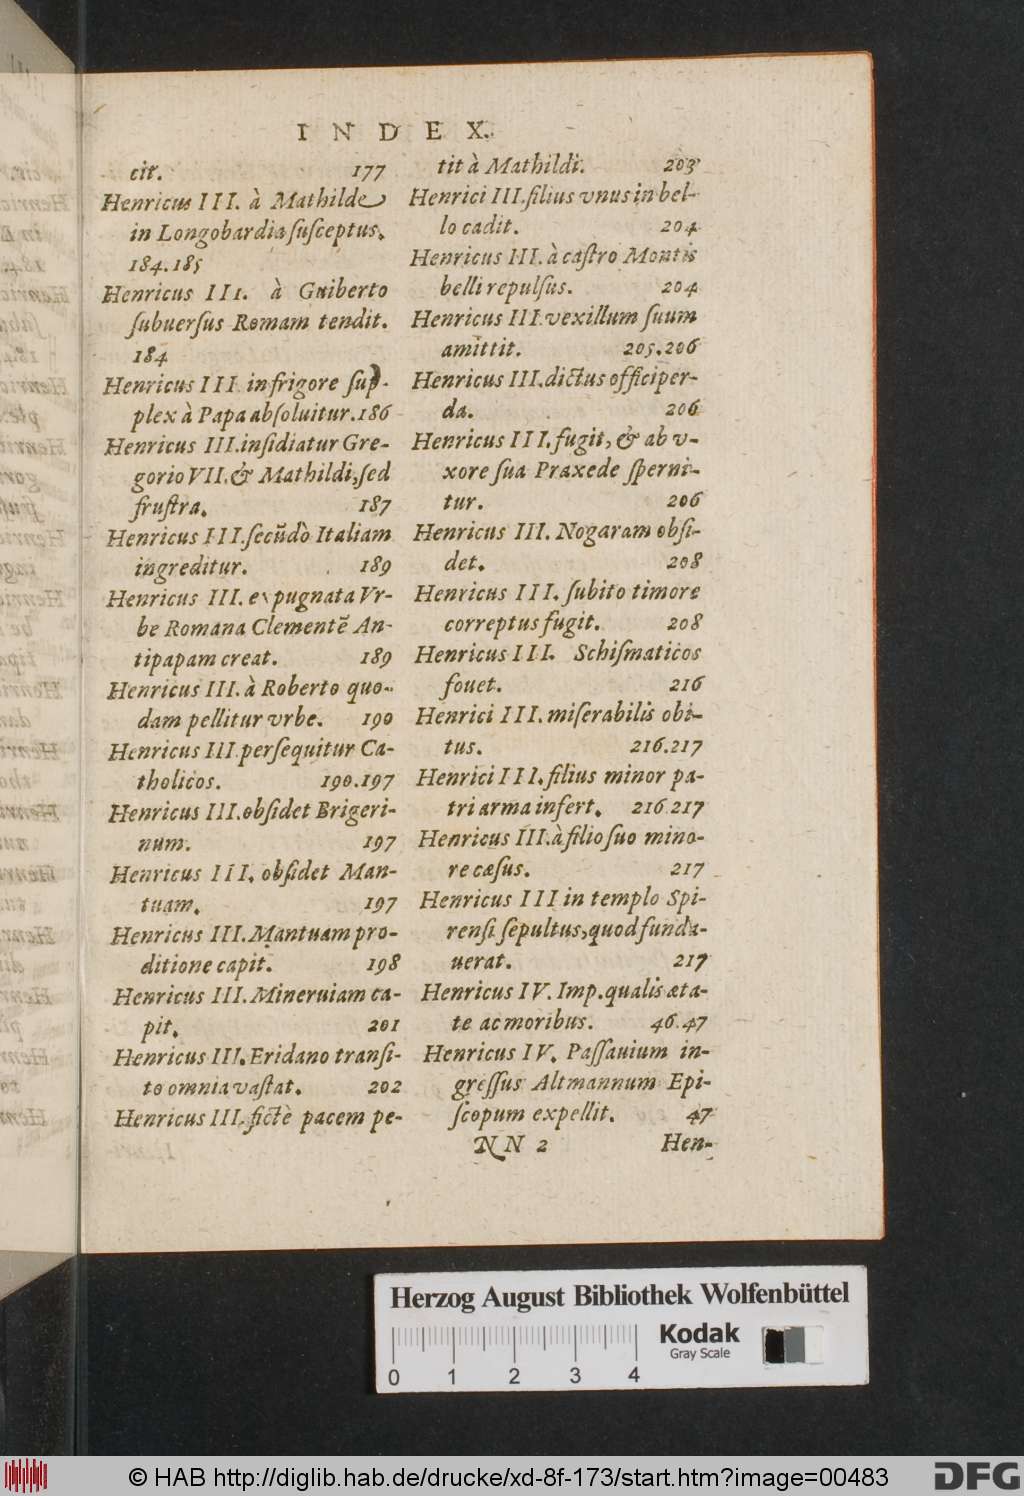 INDEX.
cit. 177
Henricus III. à Mathilde
in Longobardia ſuſceptus.
184.185
Henricus III. à Guiberto
ſubuerſus Romam tendit.
184
Henricus III in frigore ſup-
plex à Papa abſoluitur. 186
Henricus III. inſidiatur Gre-
gorio VII. & Mathildi, ſed
fruſtra. 187
Henricus III. ſecũdò Italiam
ingreditur. 189
Henricus III. expugnata Vr-
be Romana Clementẽ An-
tipapam creat. 189
Henricus III. à Roberto quo-
dam pellitur vrbe. 190
Henricus III perſequitur Ca-
tholicos. 190.197
Henricus III. obſidet Brigeri-
num. 197
Henricus III. obſidet Man-
tuam. 197
Henricus III. Mantuam pro-
ditione capit. 198
Henricus III. Mineruiam ca-
pit. 201
Henricus III. Eridano tranſi-
to omnia vaſtat. 202
Henricus III. fictè pacem pe-
tit à Mathildi. 203
Henrici III. filius vnus in bel-
lo cadit. 204
Henricus III. à caſtro Montis
belli repulſus. 204
Henricus III. vexillum ſuum
amittit. 205.206
Henricus III. dictus officiper-
da. 206
Henricus III. fugit, & ab v-
xore ſua Praxede ſperni-
tur. 206
Henricus III. Nogaram obſi-
det. 208
Henricus III. ſubito timore
correptus fugit. 208
Henricus III. Schiſmaticos
fouet. 216
Henrici III. miſerabilis obi-
tus. 216.217
Henrici III. filius minor pa-
tri arma infert. 216.217
Henricus III. à filio ſuo mino-
re cæſus. 217
Henricus III in templo Spi-
renſi ſepultus, quod funda-
uerat. 217
Henricus IV. Imp. qualis æta-
te ac moribus. 46.47
Henricus IV. Paſſauium in-
greſſus Altmannum Epi-
ſcopum expellit. 47
NN 2 Hen-
Herzog August Bibliothek Wolfenbüttel
Kodak
Gray Scale
0 1 2 3 4
© HAB http://diglib.hab.de/drucke/xd-8f-173/start.htm?image=00483
DFG